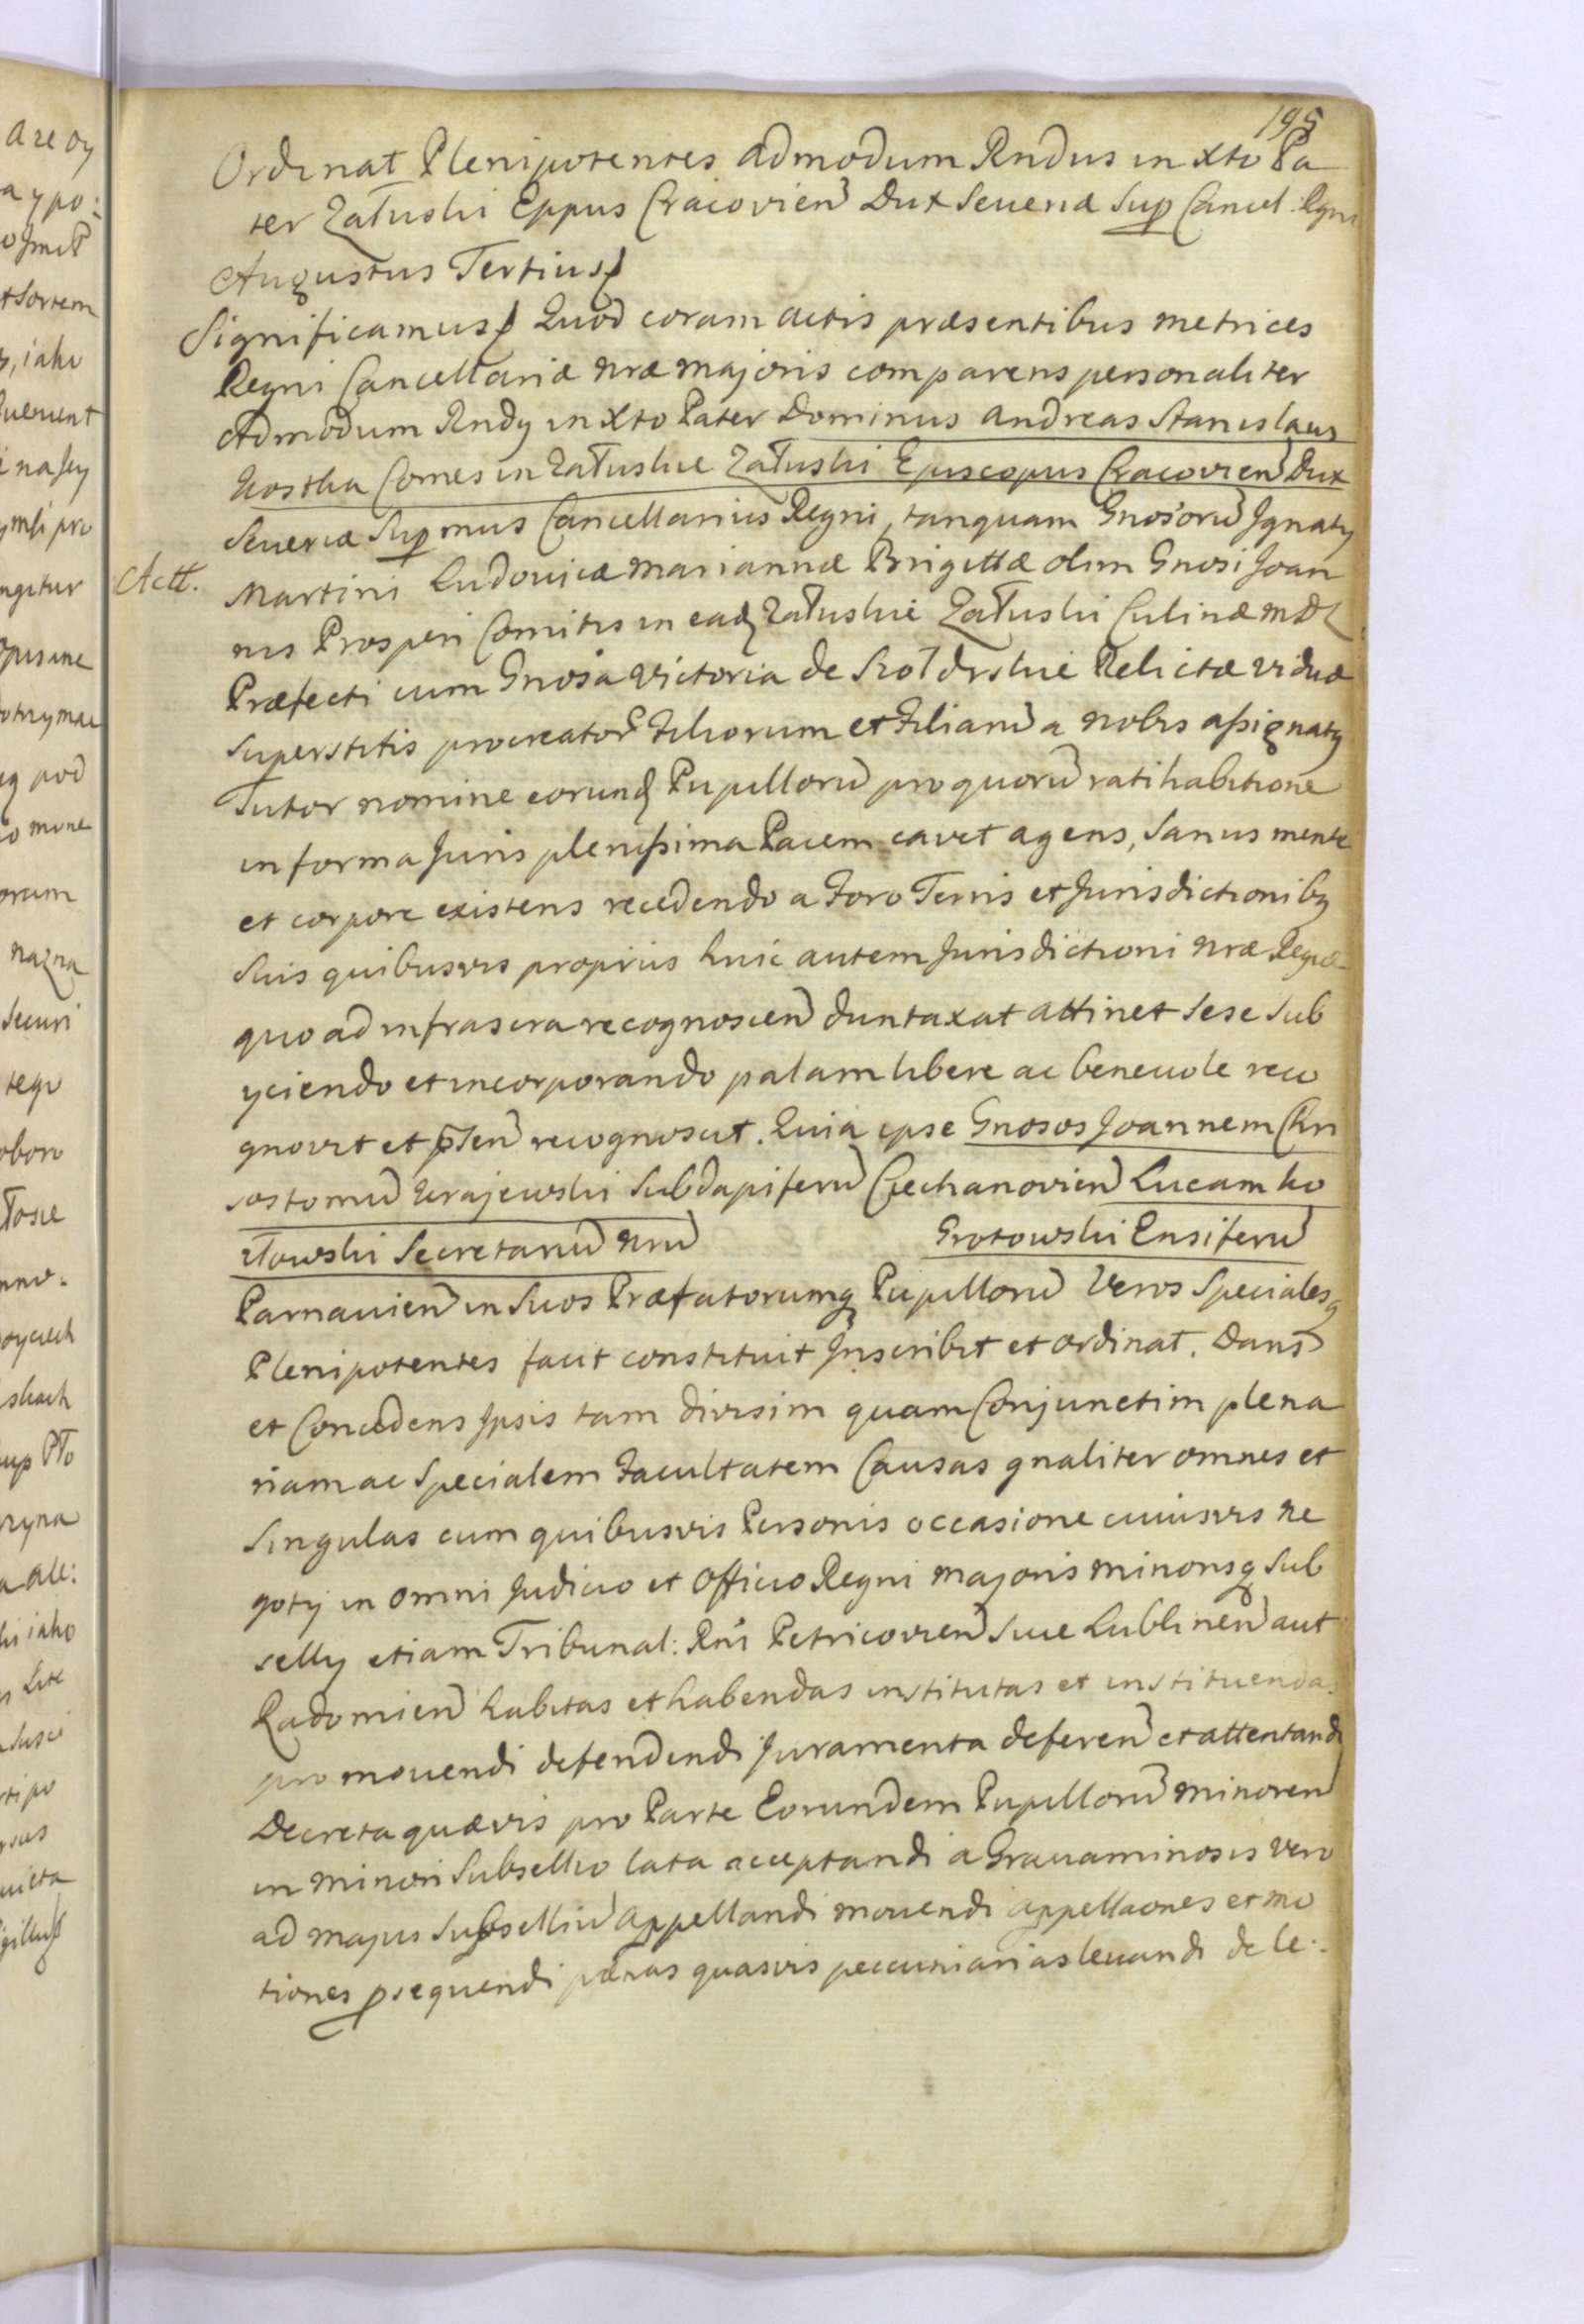 195
Ordinat Plenipotentes admodum Rndus in Xto Pa
ter Załuski Eppus Cracovien Dux Severiæ Sup Cancel. Rgni
Augustus Tertius
Significamus Quod coram actis præsentibus metrices
Regni Cancellariæ nræ majoris comparens personaliter
Admodum Rndy in Xto Pater Dominus Andreas Stanislaus
Kostka Comes in Załuskie Załuski Episcopus Cracovien Dux
Severiæ Supmus Cancellarius Regni, tanquam Gnosorū Ignaty
Actt.
Martini Ludovicæ Mariannæ Brigittæ olim Gnosi Joan
nis Prosperi Comitis in eadq Załuskie Załuski Culinæ MDL
Præfecti cum Gnosa Victoria de Skołdrskie Relictæ viduæ
superstitis procreator Filiorum et Filiarū a nobis assignaty
Tutor nomine eorund Pupillorū pro quorū ratihabitione
in forma Juris plenissima Pacem cavet agens, sanus mente
et corpore existens recedendo a Foro Terris et Jurisdictioniby
suis quibusvis propriis huic autem Jurisdictioni nræ Regiæ
quo ad infrascra recognoscen duntaxat attinet sese sub
yciendo et incorporando palam libere ac benevole reco
gnovit et pten recognoscit. Quia ipse Gnosos Joannem Chri
sostomū Krajewski Subdapiferū Ciechanovien Lucam Ko
złowski Secretariū nrū Grotowski Ensiferū
Parnavien in suos Præfatorumq Pupillorū veros specialesq
Plenipotentes facit constituit Inscribit et ordinat. Dans
et Concedens Ipsis tam divisim quam Conjunctim plena
riam ac specialem Facultatem Causas gnaliter omnes et
singulas cum quibusvis Personis occasione cuiusvis ne
goty in omni Judicio et Officio Regni majoris minorisq sub
selly etiam Tribunal: Rni Petricovien sive Lublinen aut
Radomien habitas et habendas institutas et instituendas
promovendi defendendi Juramenta deferen et attentandi
Decreta quævis pro Parte Eorundem Pupillorū minoren
in minori Subsellio lata acceptandi a Gravaminosis vero
ad majus subselliū appellandi movendi appellaones et mo
tiones psequendi pænas quasvis pecuniarias levandi de le.